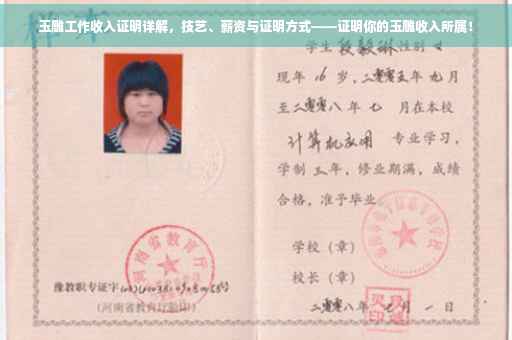 玉雕工作收入证明详解，技艺、薪资与证明方式——证明你的玉雕收入所属！
学生段毅琳性别女
现年16岁，二零零五年九月
至二零零八年七月在本校
计算机应用 专业学习，
学制三年，修业期满，成绩
合格，准予毕业
学校（章）
校长（章）
二零零八年七月一日
河南省教育厅
豫教职专证字
（河南省教育厅监印）